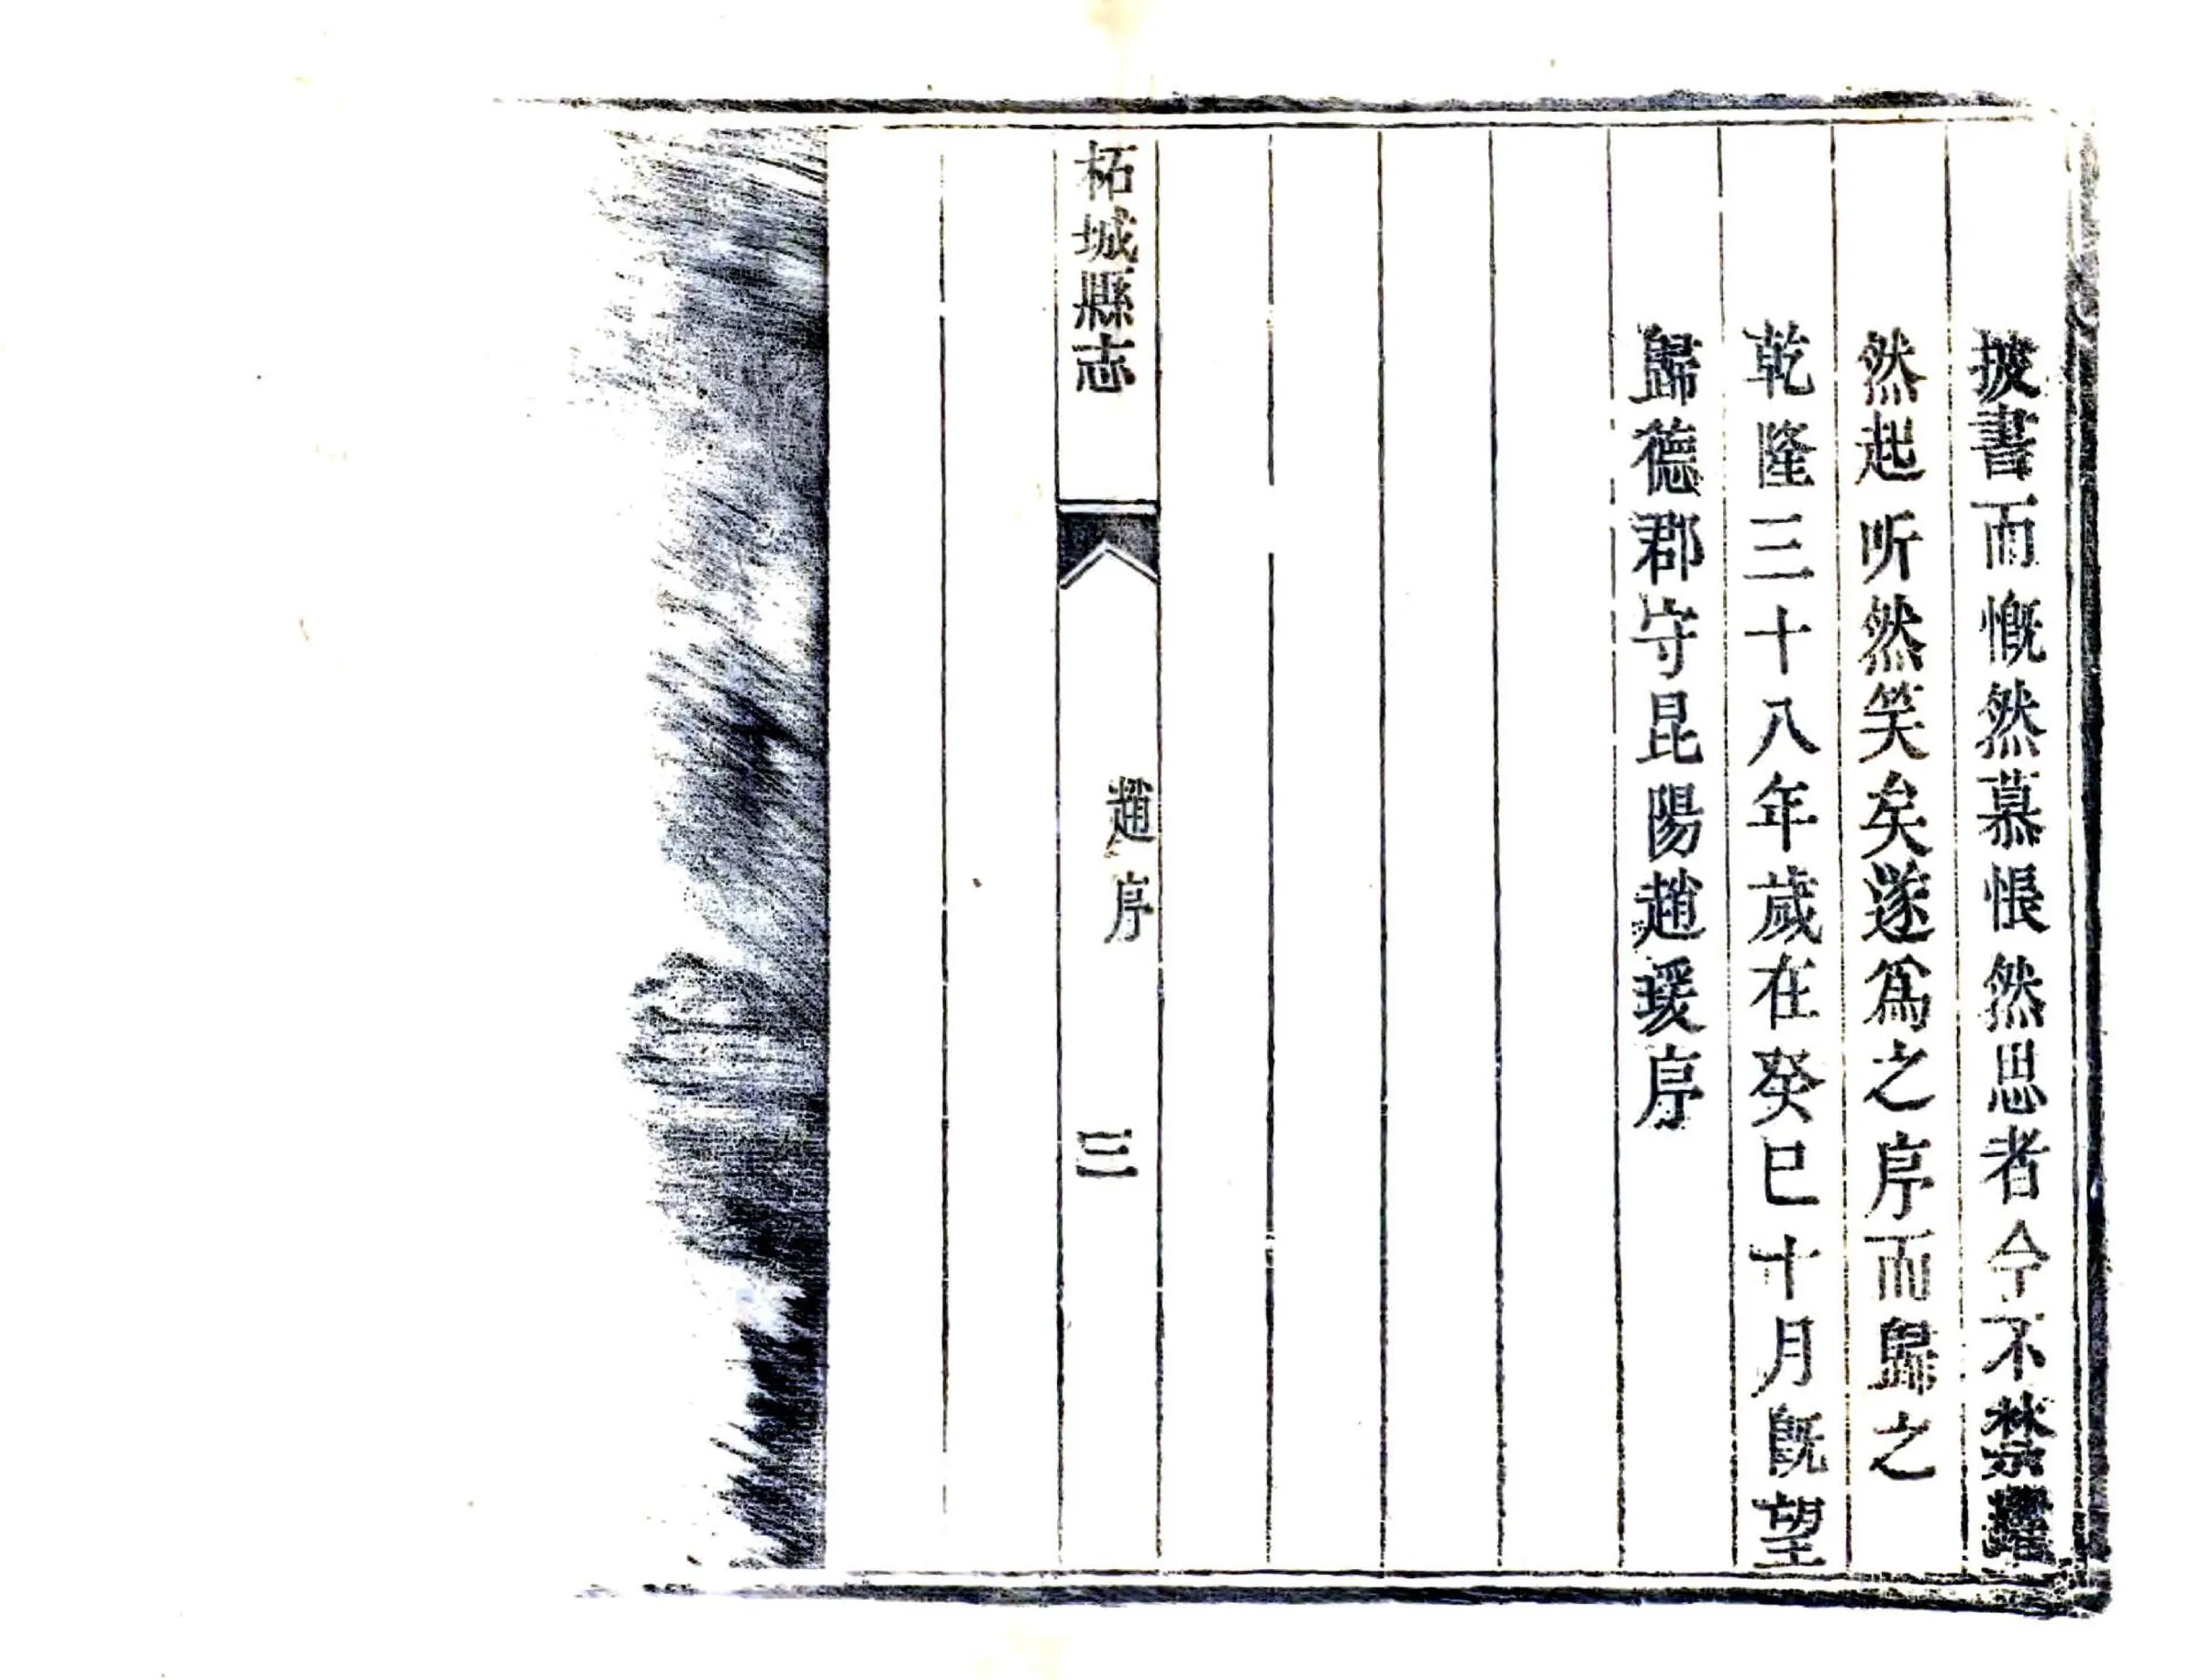 披書而慨然慕悵然思者今不禁躍
然起听然笑矣遂為之序而歸之
乾隆三十八年歲在癸巳十月既望
歸德郡守昆陽趙瑗序
柘城縣志
趙序
三